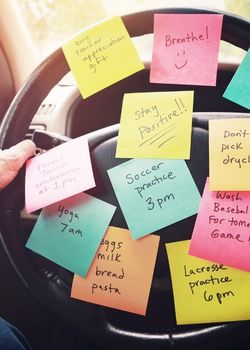 buy
teacher
appreciation
gift
Breathe!
Stay
Positive!!
Don't
pick
dryc
Parent
Teacher
conference
at 1pm
Soccer
practice
3pm
Wash
Baseba
For tomor
Game
Yoga
7am
eggs
Milk
bread
pasta
Lacrosse
practice
6pm